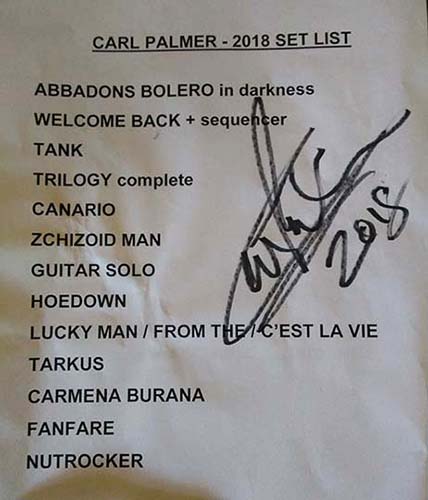 CARL PALMER - 2018 SET LIST
ABBADONS BOLERO in darkness
WELCOME BACK + sequencer
TANK
TRILOGY complete
CANARIO
ZCHIZOID MAN
GUITAR SOLO
HOEDOWN
LUCKY MAN / FROM THE / C'EST LA VIE
TARKUS
CARMENA BURANA
FANFARE
NUTROCKER
2018